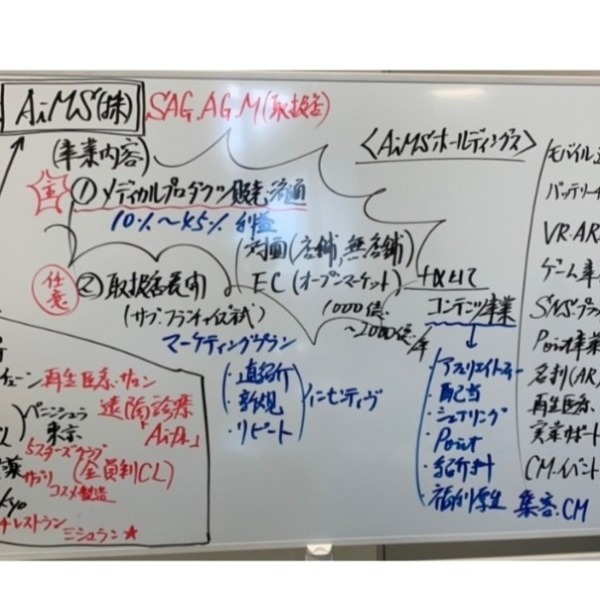 AiMS(株) SAG.AG.M(取扱店)
(事業内容)
① メディカルプロダクツ販売流通
10%~45% 利益
対面(店舗,無店舗)
任意
② 取扱店展開
EC(オープンマーケット)
(サブ・フランチャイズ式)
1000億
~2000億/年
マーケティングプラン
・直紹介
・新規
・リピート
インセンティヴ
〈AiMSホールディングス〉
コンテンツ事業
・アフィリエイトフィー
・配当
・シェアリング
・Point
・紹介料
・福利厚生 集客.CM
モバイル
バッテリー
VR.AR
ゲーム事
SNSプラ
Point事業
名刺(AR)
再生医療
実業サポート
CM.イベント
チェーン 再生医療.サロン
ペニンシュラ
東京
遠隔診療
「AiDr」
5スターズクラブ
サプリ
(会員制CL)
コスメ製造
kyo
レストラン
ミシュラン★